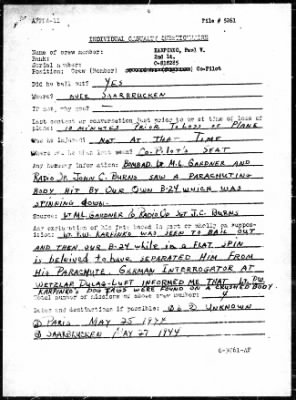 File # 5261
INDIVIDUAL CASUALTY QUESTIONNAIRE
Name of crew member: KARPINKO, Paul W.
Rank: 2nd Lt.
Serial number:
Position: Crew (Bomber) Co-Pilot
Did he bail out? YES
Where? OVER SAARBRUCKEN
If not, why not? —
Last contact or conversation just prior to or at time of loss of
plane: 10 MINUTES PRIOR TO LOSS OF PLANE
Was he injured? NOT AT THE TIME
Where was he when last seen? CO-PILOT'S SEAT
Any hearsay information: BOMBAD. LT. M.L. GARDNER AND
RADIO JOHN C. BURNS SAW A PARACHUTING
BODY HIT BY OUR OWN B-24 WHICH WAS
SPINNING DOWN.
Source: LT. M.L. GARDNER & RADIO SGT J.C. BURNS
Any explanation of his fate based in part or wholly on supposition:
LT. P.W. KARPINKO WAS SEEN TO BAIL OUT
AND THEN OUR B-24 WHILE IN A FLAT SPIN
IS BELEIVED TO HAVE SEPARATED HIM FROM
HIS PARACHUTE. GERMAN INTERROGATOR AT
WETZLAR DULAG-LUFT INFORMED ME THAT LT. P.W.
KARPINKO'S DOG TAGS WERE FOUND ON A CRUSHED BODY.
Total number of missions of above crew member: 4
Dates and destinations if possible: UNKNOWN
PARIS MAY 25 1944
SAARBRUCKEN MAY 27 1944